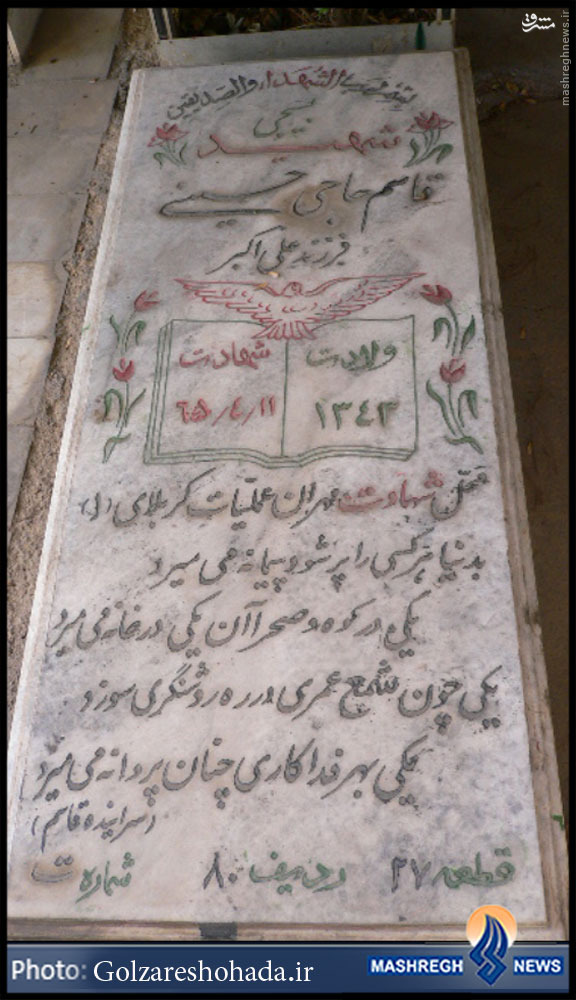 مشرق
mashreghnews.ir
بسم رب الشهداء والصدیقین
بسیجی
شهید
قاسم حاجی حسینی
فرزند علی اکبر
ولادت
۱۳۴۳
شهادت
۶۵/۴/۱۱
محل شهادت مهران عملیات کربلای (۱)
بدنیا هر کسی را پر شود پیمانه می میرد
یکی در کوه و صحرا آن یکی در خانه می میرد
یکی چون شمع عمری در ره روشنگری سوزد
یکی بهر فداکاری چنان پروانه می میرد
(سراینده قاسم)
قطعه ۲۷ ردیف ۸۰ شماره ت
Photo: Golzareshohada.ir
MASHREGH NEWS